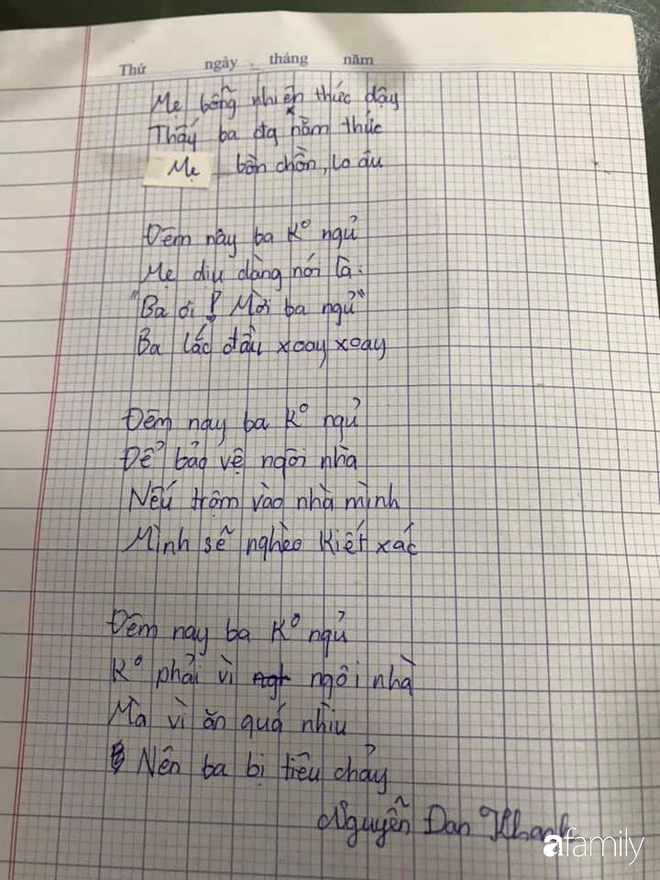 Thứ ngày tháng năm
Mẹ bỗng nhiên thức dậy
Thấy ba đg nằm thức
Mẹ bồn chồn, lo âu
Đêm nây ba Kº ngủ
Mẹ dịu dàng nói là:
"Ba ơi! Mời ba ngủ"
Ba lắc đầu xoay xoay
Đêm nay ba Kº ngủ
Để bảo vệ ngôi nhà
Nếu trộm vào nhà mình
Mình sẽ nghèo Kiết xác
Đêm nay ba Kº ngủ
Kº phải vì ngôi nhà
Mà vì ăn quá nhìu
Nên ba bị tiêu chảy
Nguyễn Đan Khanh
afamily